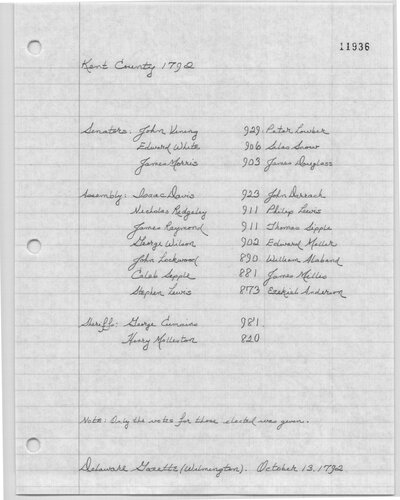 11936
Kent County 1792
Senators: John Vining 929 Peter Lowber
Edward White 906 Silas Snow
James Morris 903 James Douglass
Assembly: Isaac Davis 923 John Darrach
Nicholas Ridgeley 911 Philip Lewis
James Raymond 911 Thomas Sipple
George Wilson 902 Edward Miller
John Lockwood 890 William
Caleb Sipple 881 James Milles
Stephen Lewis 873 Ezekiel Anderson
Sheriffs: George Cummins 981
Henry Molleston 820
Note: Only the votes for those elected was given.
Delaware Gazette (Wilmington). October 13, 1792